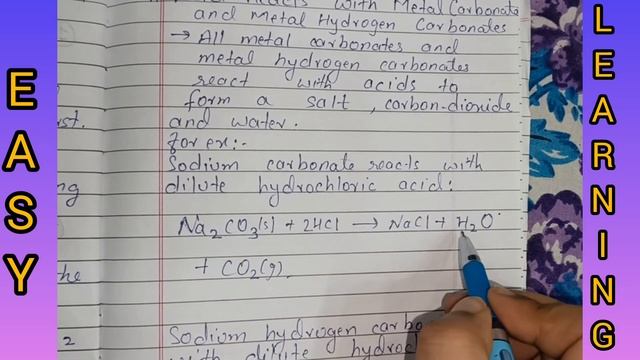 EASY
Reacts with Metal Carbonate
and Metal Hydrogen Carbonates
→ All metal carbonates and
metal hydrogen carbonates
react with acids to
form a salt, carbon-dioxide
and water.
for ex:-
Sodium carbonate reacts with
dilute hydrochloric acid:
Na₂CO₃(s) + 2HCl → NaCl + H₂O
+ CO₂(g).
Sodium hydrogen carbo
with dilute hydroc
LEARNING